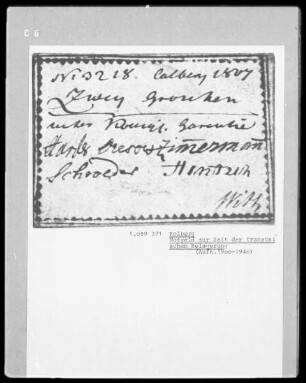 C 6
No 3218. Colberg 1807
Zwey Groschen
unter Königl. Garantie
Dresow Zimmermann
Schroeder Hentsch
1.089 371 Kolberg
Notgeld zur Zeit der Französi
schen Belagerung
(Aufn.1900-1940)